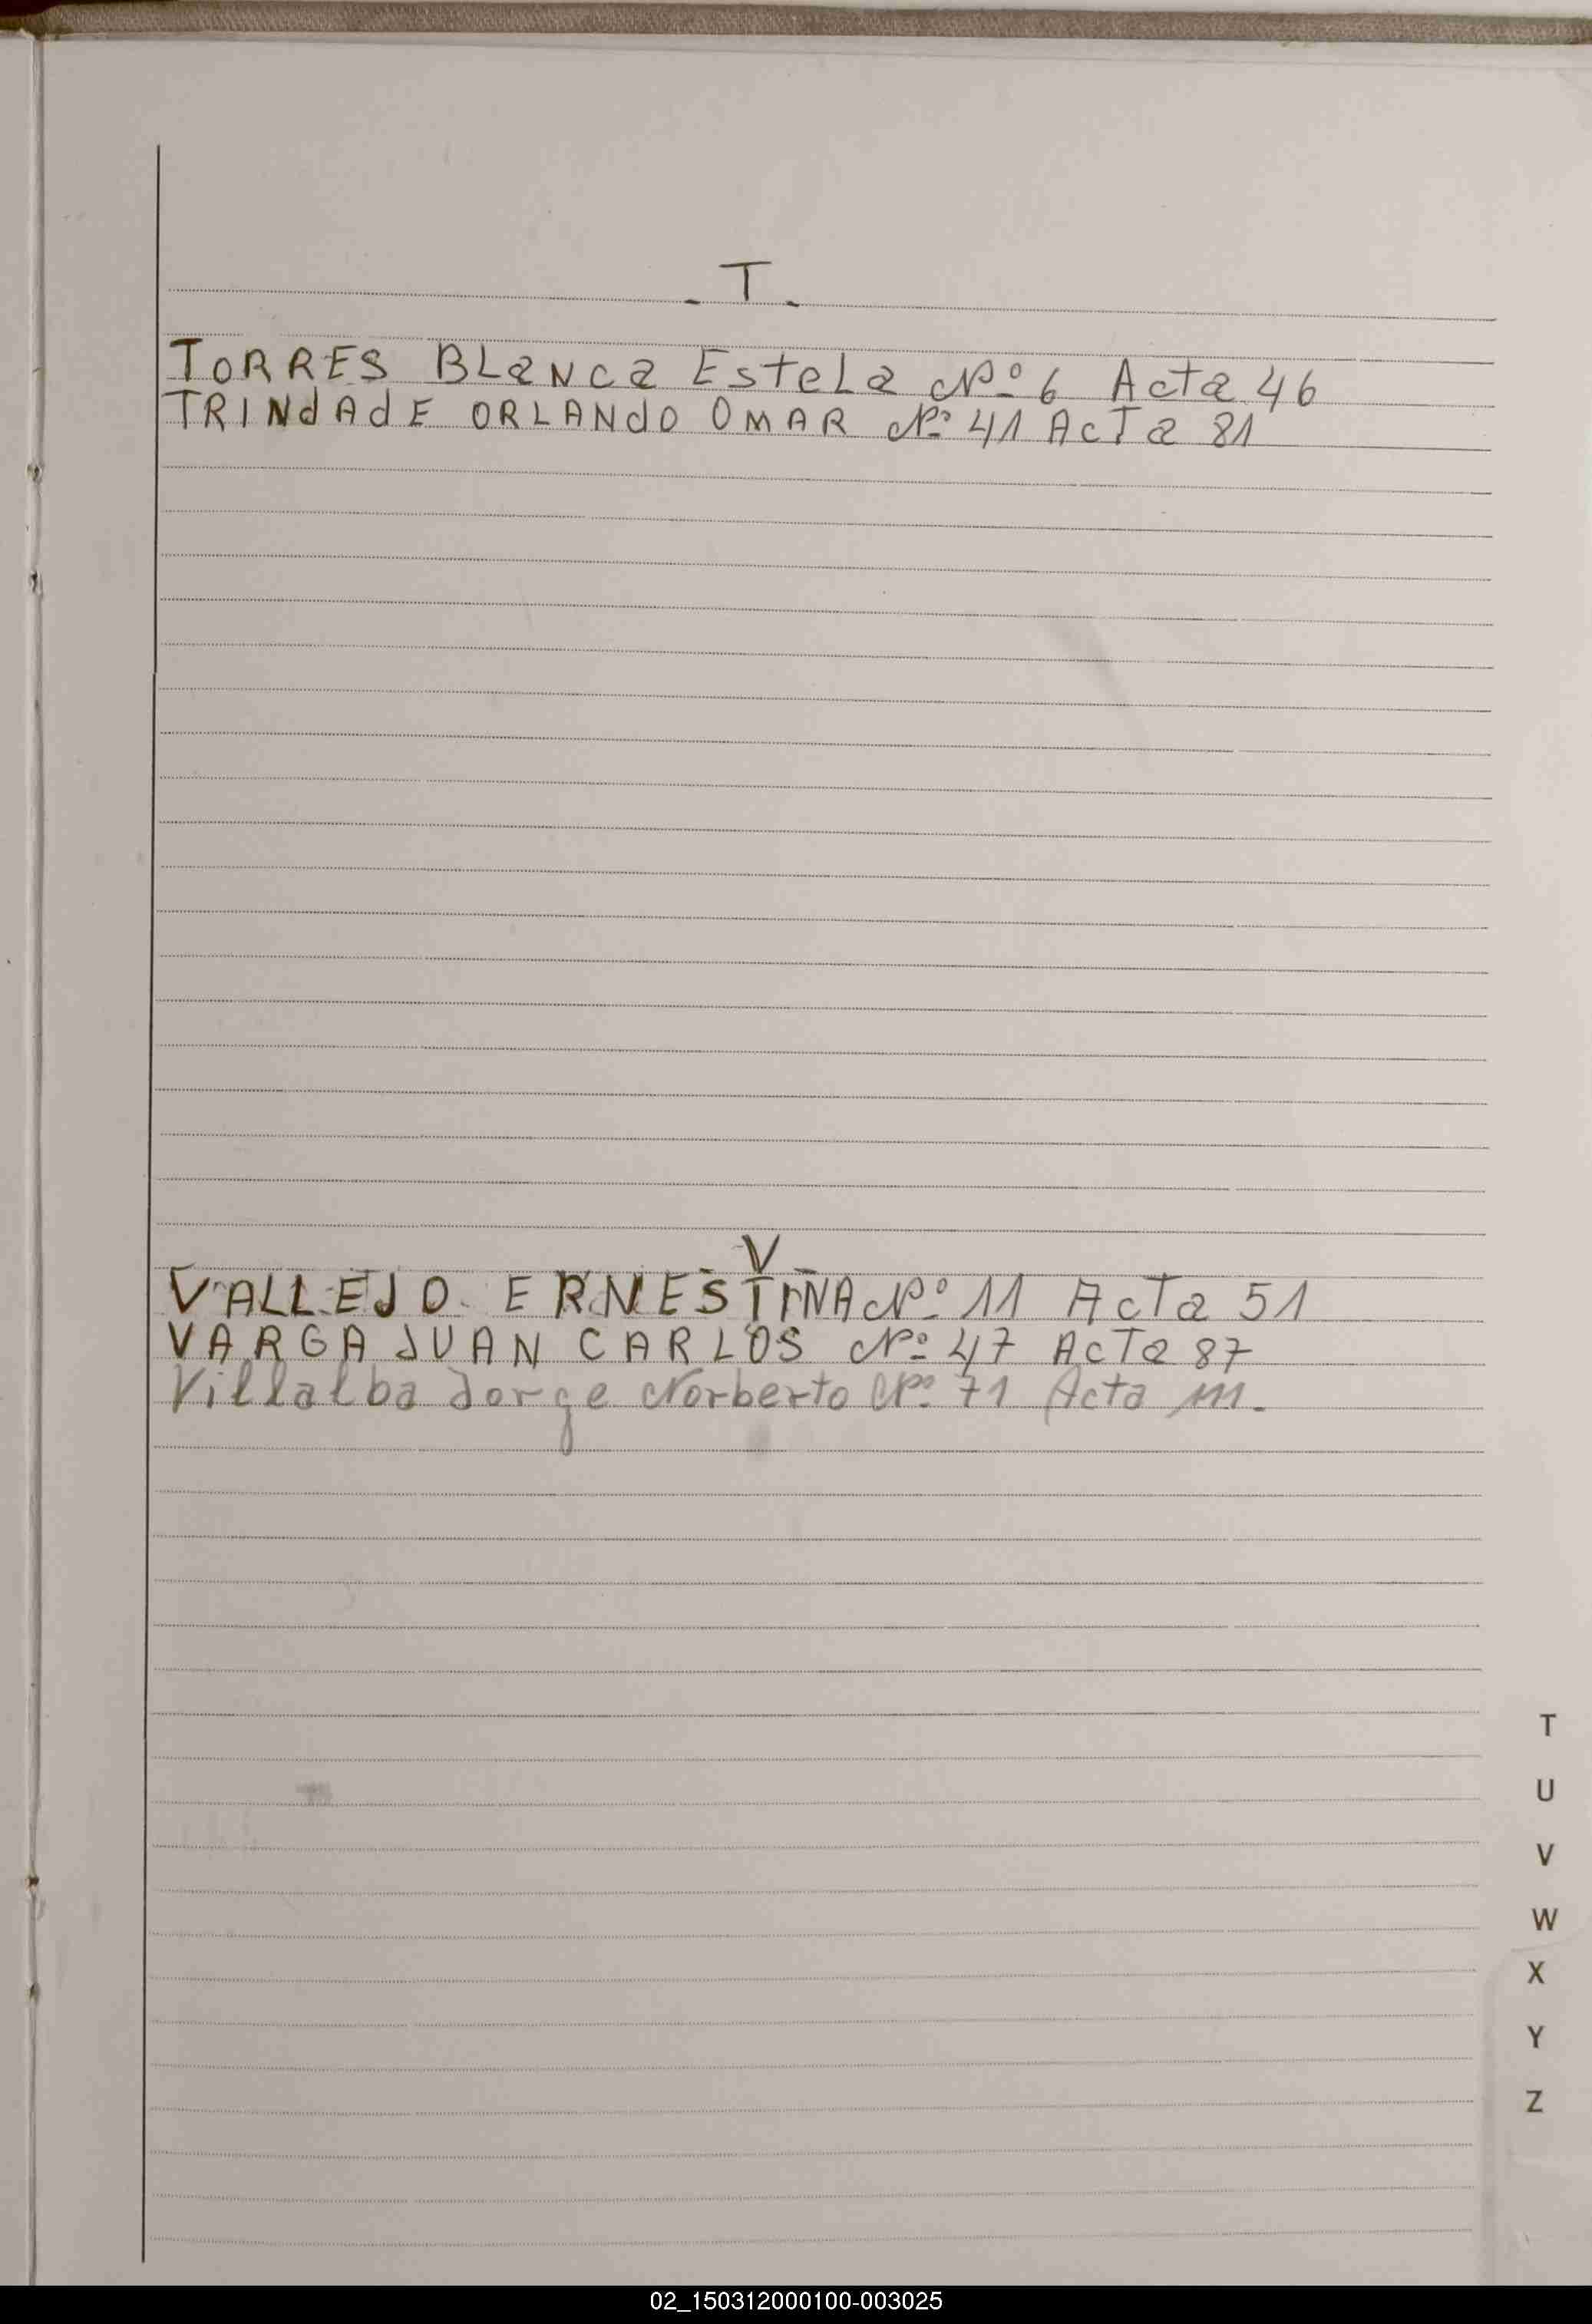 . T .
TORRES BLanca EsteLa Nº 6 Acta 46
TRINdAdE ORLANdO OMAR Nº 41 AcTa 81
V
VALLEJO ERNESTINA Nº 11 AcTa 51
VARGA JUAN CARLOS Nº 47 AcTa 87
Villalba Jorge Norberto Nº 71 Acta 111.
T
U
V
W
X
Y
Z
02_150312000100-003025